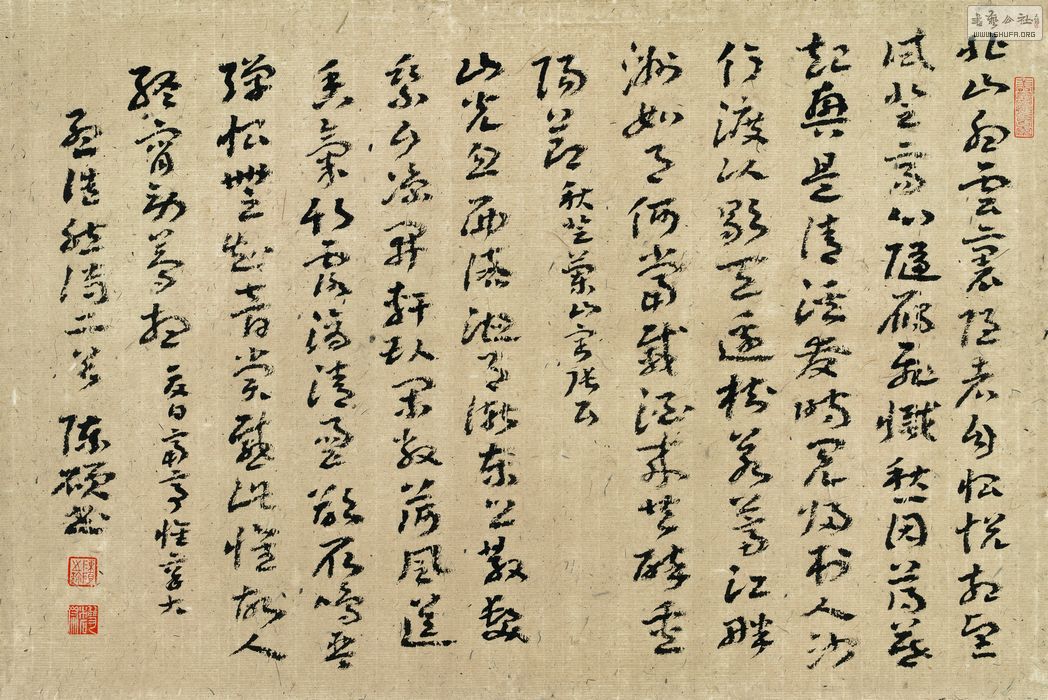 北山白雲裏隱者自怡悅相望
試登高心隨雁飛滅愁因薄暮
起興是清溪發時見歸村人沙
行渡頭歇天邊樹若薺江畔
洲如月何當載酒來共醉重
陽節 秋登蘭山寄張五
山光忽西落池月漸東上散髮
乘夕涼開軒臥閑敞荷風送
香氣竹露滴清響欲取鳴琴
彈恨無知音賞感此懷故人
終宵勞夢想 夏日南亭懷辛大
孟浩然詩二首 陳碩書
書藝公社
WWW.SHUFA.ORG